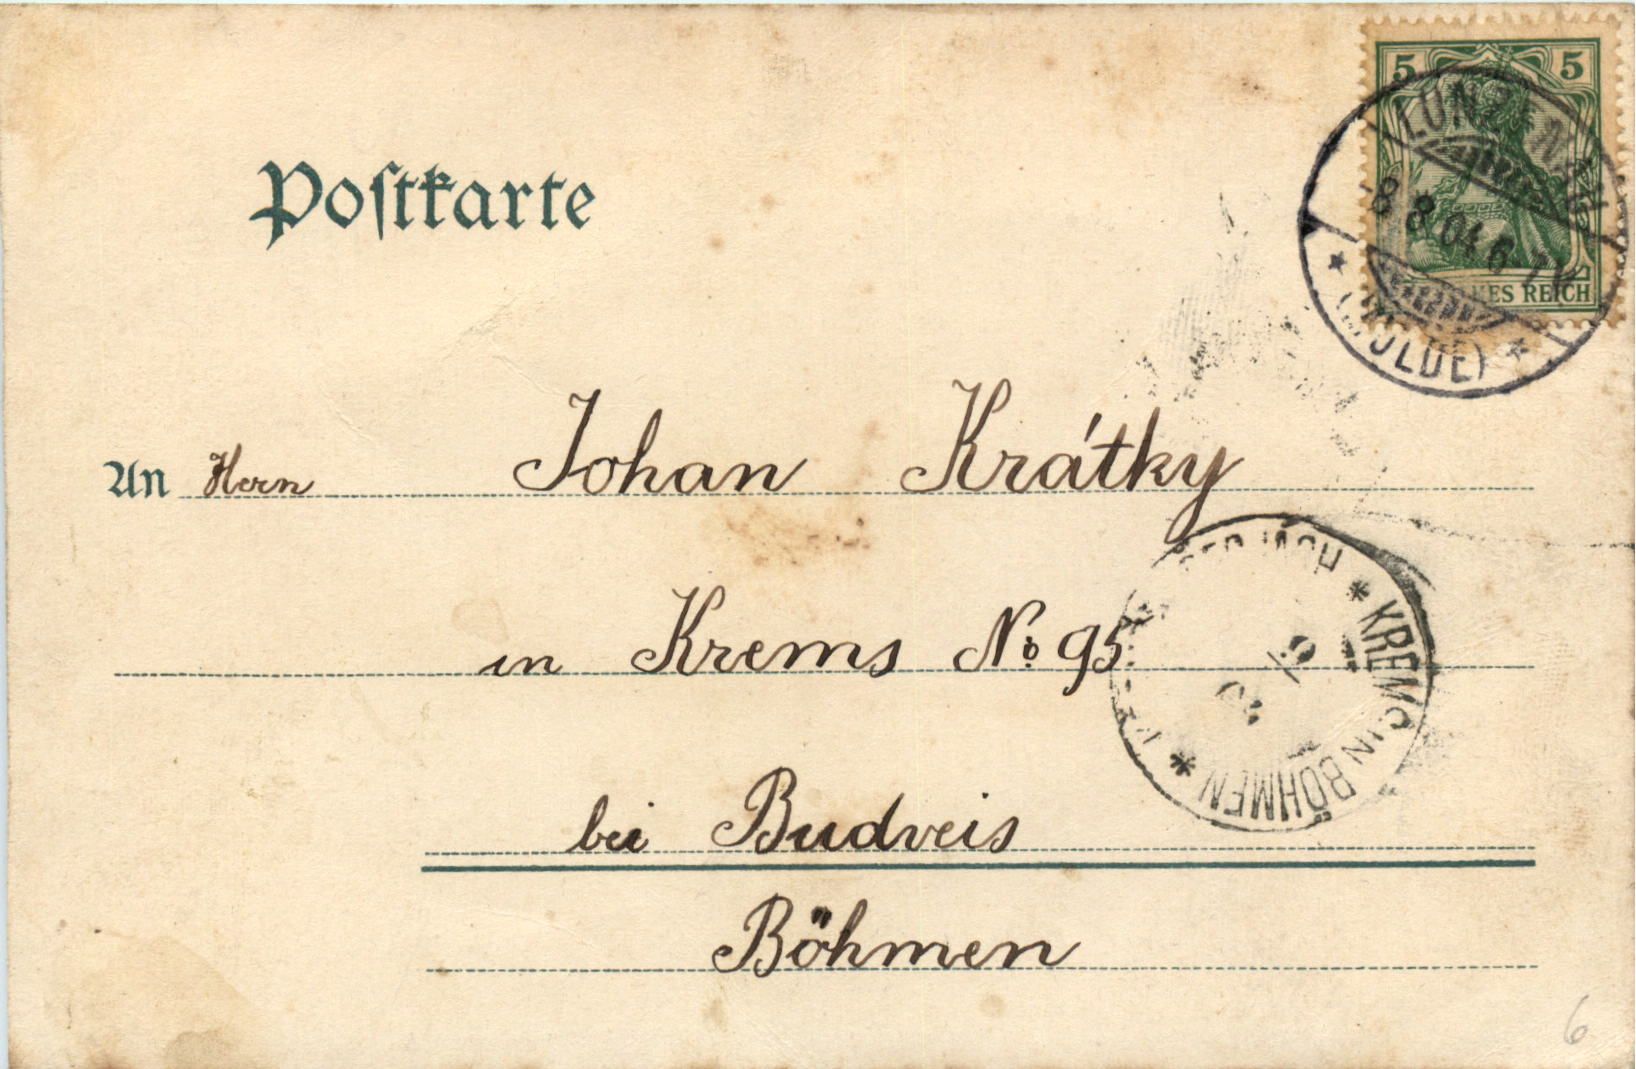 5 5
LUNZENAU
8.8.04.6-7N.
(MULDE)
REICH
Postkarte
An Hern Johan Krátky
in Krems No 95
KREMS IN BÖHMEN
bei Budveis
Böhmen
6